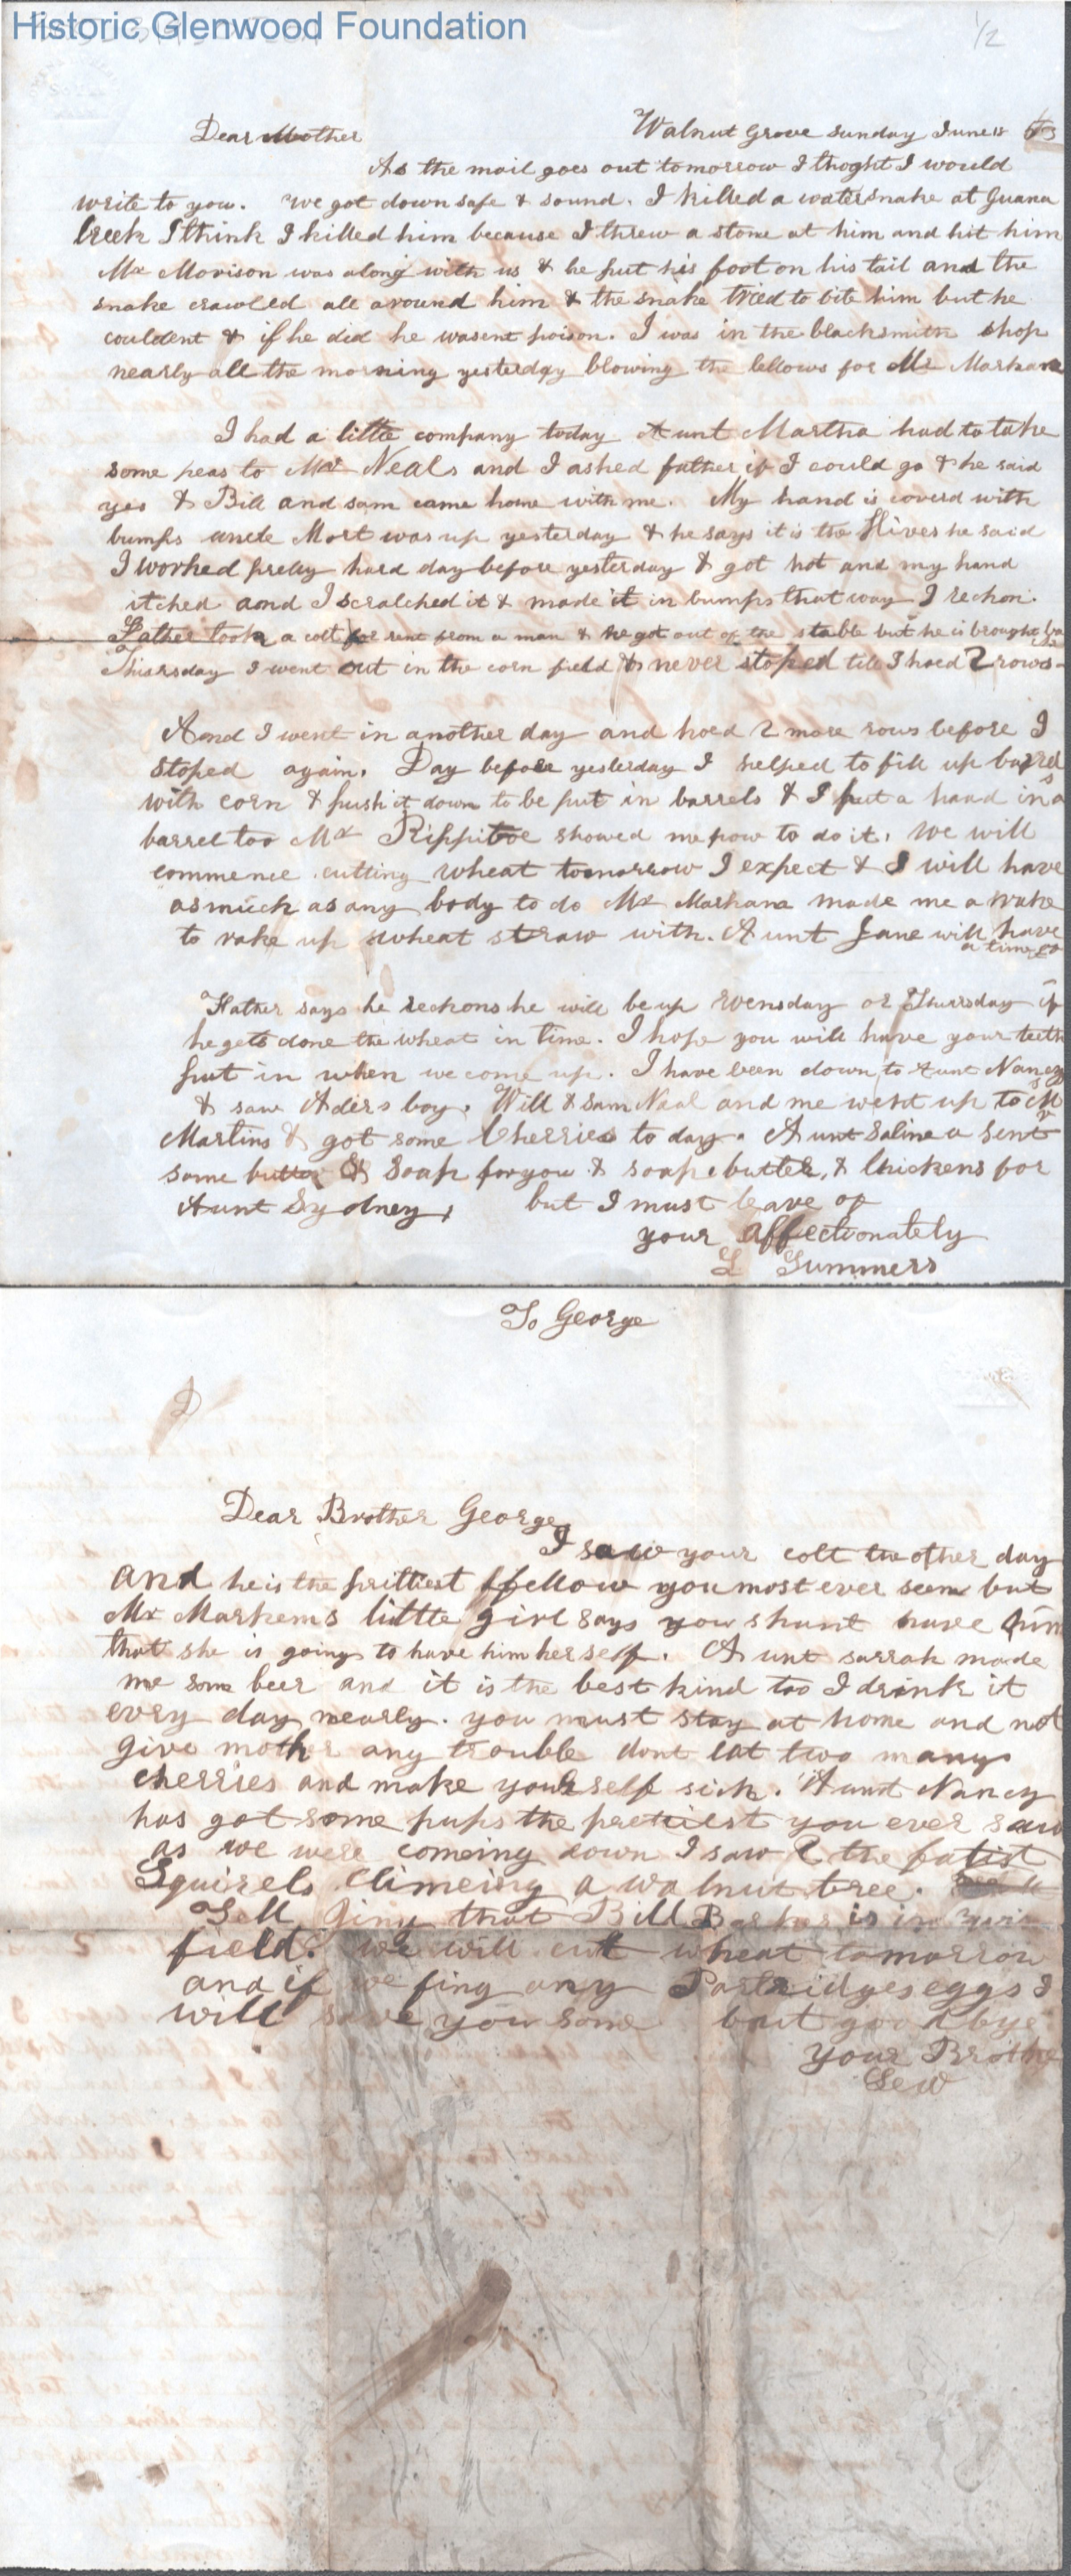 Historic Glenwood Foundation
1/2
Dear Mother Walnut Grove Sunday June 18
As the mail goes out tomorrow I thoght I would
write to you. We got down safe & sound. I killed a watersnake at Guana
Creek I think I killed him because I threw a stone at him and hit him
Mr Morison was along with us & he put his foot on his tail and the
snake crawled all around him & the snake tried to bite him but he
couldent & if he did he wasent poison. I was in the blacksmith shop
nearly all the morning yesterday blowing the bellows for Mr
I had a little company today Aunt Martha had to take
some peas to Mr Neals and I asked father if I could go & he said
yes & Bill and Sam came home with me. My hand is coverd with
bumps uncle Mort was up yesterday & he says it is the Hives he said
I worked pretty hard day before yesterday & got hot and my hand
itched aond I scratched it & made it in bumps that way I reckon.
Father took a colt for rent from a man & he got out of the stable but he is brought
Thursday I went out in the corn field & never stoped till I hoed 2 rows
And I went in another day and hoed 2 more rows before I
stoped again. Day before yesterday I helped to fill up barrels
with corn & push it down to be put in barrels & I put a hand in a
barrel too Mr Rippitoe showed me how to do it. We will
commence cutting wheat tomorrow I expect & I will have
as much as any body to do Mr Markana made me a wrake
to rake up wheat straw with. Aunt Jane will have
a time
Father says he reckons he will be up Wensday or Thursday if
he gets done the wheat in time. I hope you will have your teeth
put in when we come up. I have been down to Aunt Nancy
& saw Aders boy. Will & Sam Neal and me went up to Mr
Martins & got some Cherries to day. Aunt Salinea sent
some butter & soap for you & soap butter, & Chickens for
Aunt Sydney, but I must leave of
your affectionately
L Summers
To George
Dear Brother George
I saw your colt the other day
and he is the prittiest ffellow you most ever seen but
Mr Markems little girl says you shant have him
that she is going to have him herself. Aunt sarrah made
me some beer and it is the best kind too I drink it
every day nearly. you must stay at home and not
give mother any trouble dont eat two many
cherries and make yourself sick. Aunt Nancy
has got some pups the pretiest you ever saw
as we were comeing down I saw 2 the fatist
Squirels Climeing a walnut tree.
Tell Giny that Bill is in
field. we will cut wheat tomorrow
and if we fing any Partridges eggs I
will save you some but good bye
your Brother
Lew